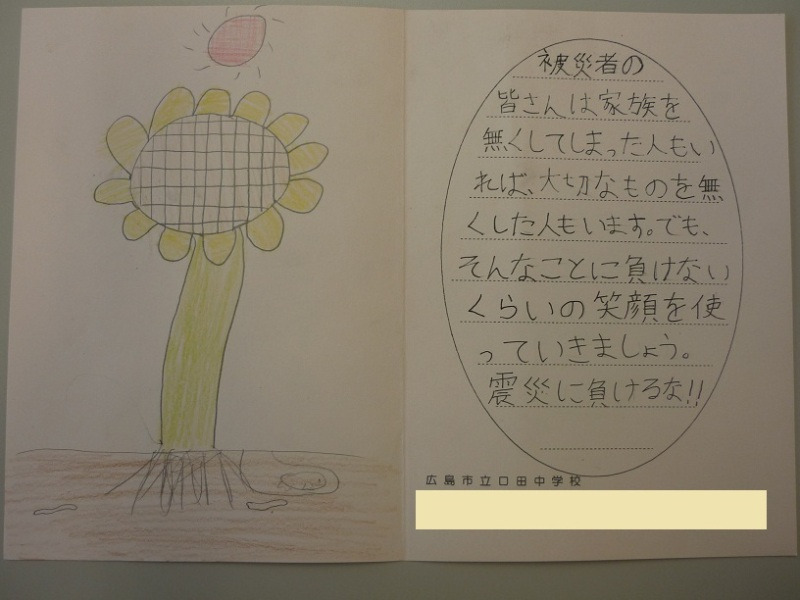 被災者の
皆さんは家族を
無くしてしまった人もい
れば、大切なものを無
くした人もいます。でも、
そんなことに負けない
くらいの笑顔を使
っていきましょう。
震災に負けるな!!
広島市立口田中学校